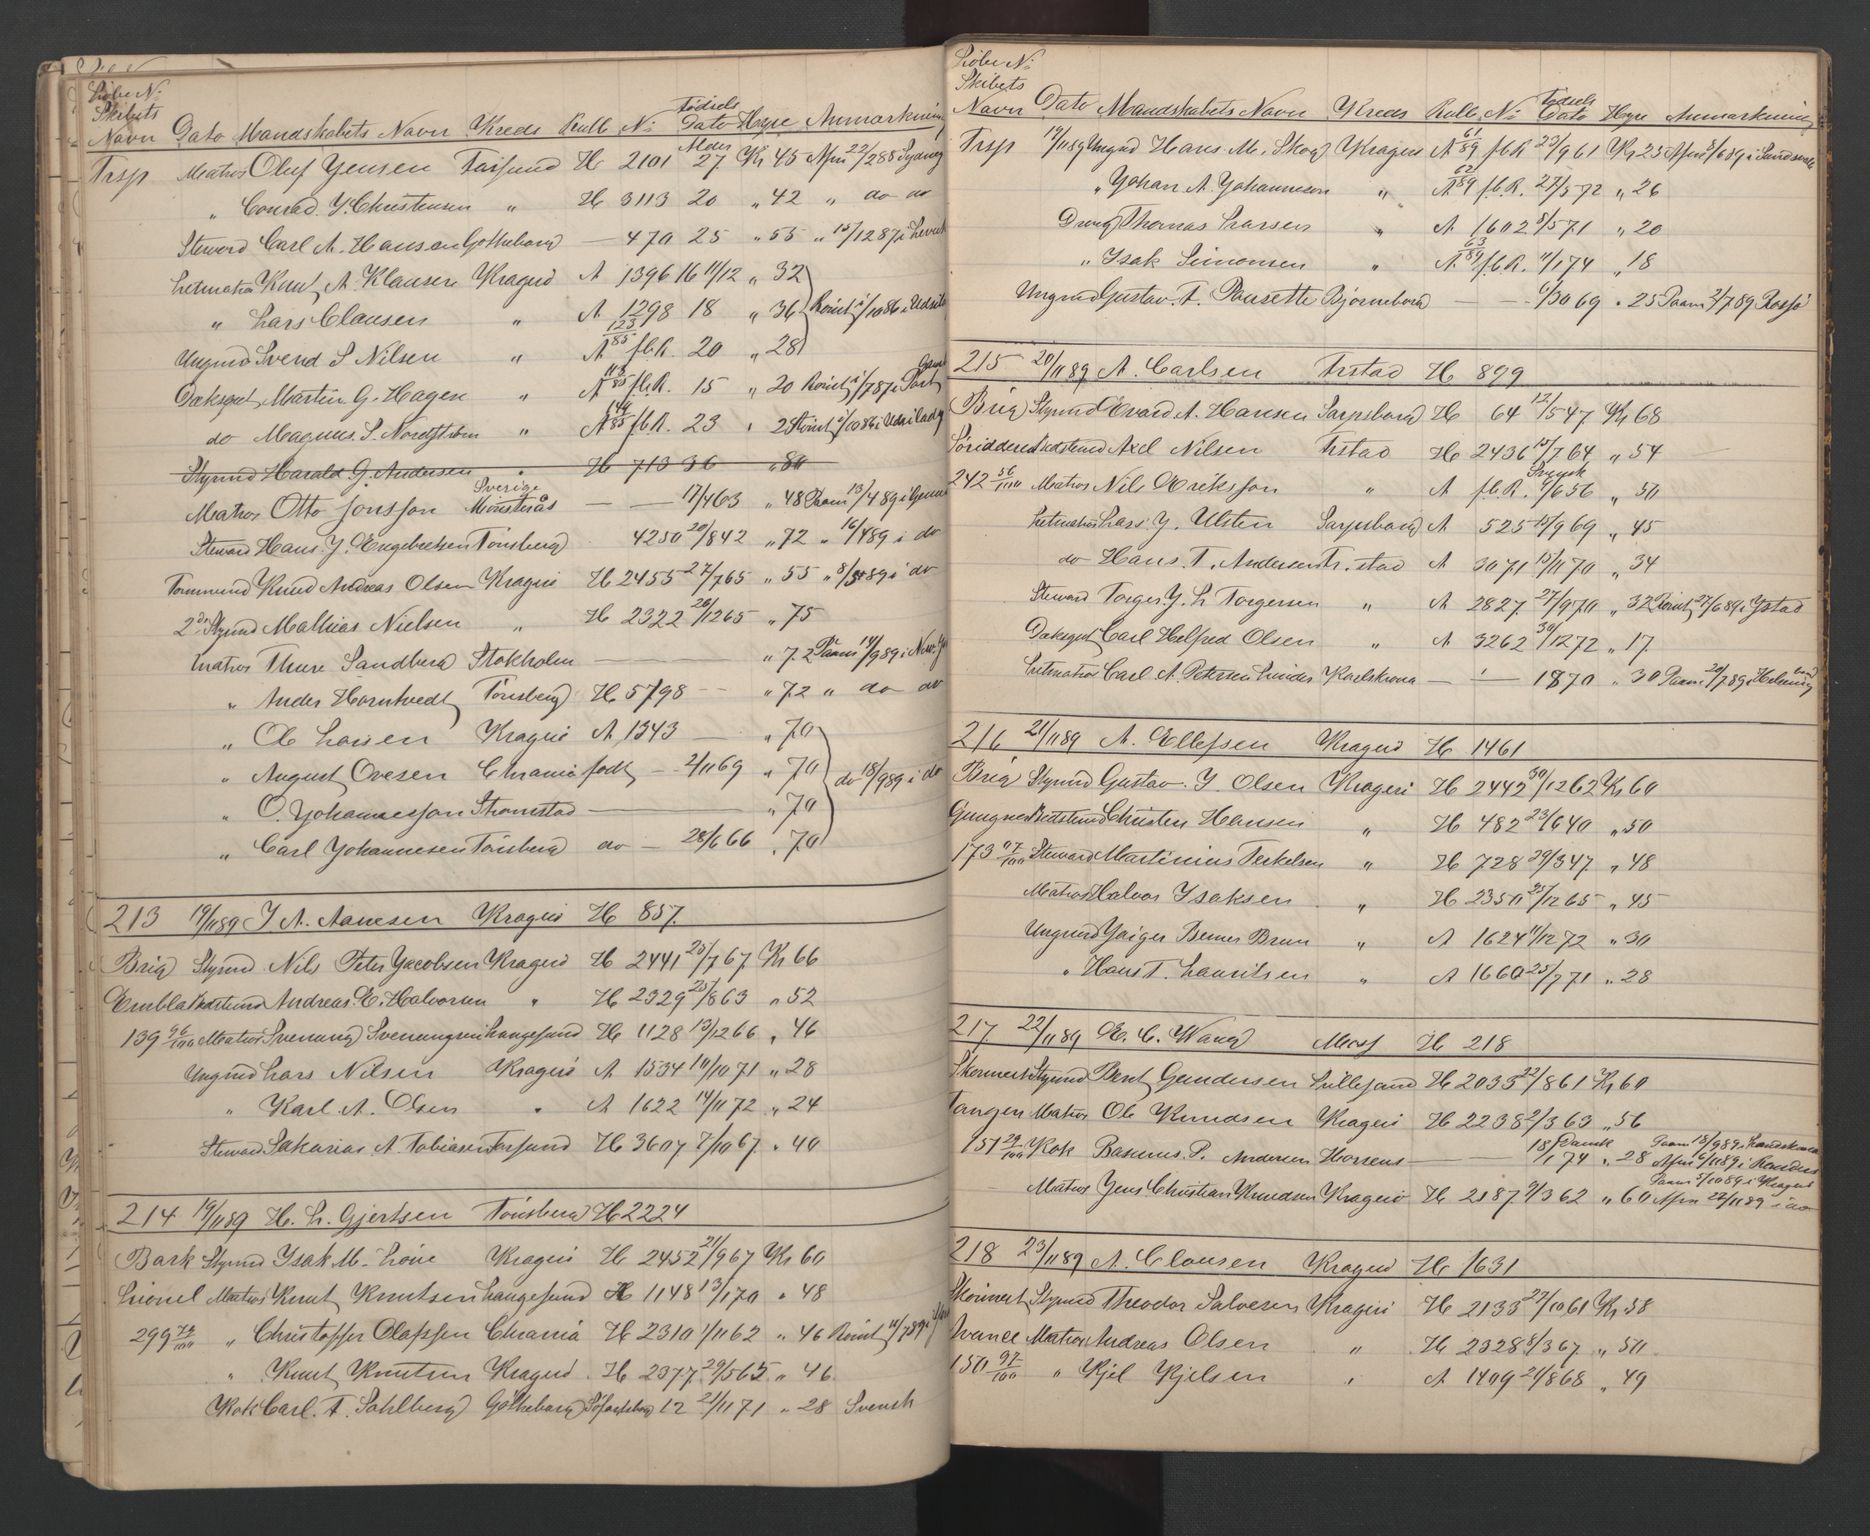 Løbe No
Skibets
Navn Dato Mandskabets Navn Kreds Rull No Fødsels Dato Hyre Anmærkning
Alder
Trsp Matros Oluf Jensen Farsund H 2101 27 Kr 45 Afm 22/2 88 Sydney
" Conrad J. Christensen " H 3113 20 " 42 " do do
Steward Carl A. Hansen Gøtheborg — 470 25 " 55 " 15/12 87 i
Letmatros Knut A. Klausen Kragerø A 1396 16 11/12 " 32
" Lars Clausen " A 1298 18 " 36 Rømt 1/10 86 i
Ungmd Svend S Nilsen " A 123/85 f.b.R. 20 " 28
Dæksgut Martin G. Hagen " A 85 f.b.R. 15 " 20 Rømt 1/7 87 i Port
do Magnus S. Nordstrøm " A 85 f.b.R. 23 " Rømt 1/10 86 i
Styrmd Harald G. Andersen " H 713 36 " 80
Matros Otto Jonsson Sverige Mønsterås — — 17/4 63 " 48 Paam 13/4 89 i
Steward Hans J. Engebretsen Tønsberg 4250 20/8 42 " 72 " 16/4 89 i do
Tømmermd Knud Andreas Olsen Kragerø H 2455 27/7 65 " 55 " 8/5 89 i do
2den Styrmd Mathias Nielsen " H 2322 26/12 65 " 75
Matros Thure Sandberg Stokholm — " 72 Paam 14/9 89 i New
" Anders Horntvedt Tønsberg H 5798 — " 72 " do do
" Ole Larsen Kragerø A 1343 — " 70
" August Ovesen Chrania født — 2/11 69 " 70 do 18/9 89 i do
" O. Johannesson Strømstad — " 70
" Carl Johannesen Tønsberg do — 28/6 66 " 70
213 19/11 89 J. A. Aanesen Kragerø H 857.
Brig Styrmd Nils Peter Jacobsen Kragerø H 2441 23/7 67 Kr 66
Embla Andreas E. Halvorsen " H 2329 25/8 63 " 52
139 96/100 Matros Svenung Svenungsen Langesund H 1128 13/12 66 " 46
Ungmd Lars Nilsen Kragerø A 1534 10/10 71 " 28
" Karl A. Olsen " A 1622 14/11 72 " 24
Steward Sakarias A. Tobiasen Farsund H 3607 7/10 67 " 40
214 19/11 89 H. L. Gjertsen Tønsberg H 2224
Bark Styrmd Isak M. Kragerø H 2452 21/9 67 Kr 60
Lionel Matros Knut Knutsen Langesund H 1148 13/1 70 " 48
299 /100 " Christoffer Olafssen Chrania H 2310 1/11 62 " 46 Rømt 11/7 89 i
" Knut Knutsen Kragerø H 2377 29/5 65 " 46
Kok Carl. F. Sahlberg Gøtheborg 12 21/11 71 " 28 Svensk
Løbe No
Skibets
Navn Dato Mandskabets Navn Kreds Rull No Fødsels Dato Hyre Anmærkning
Trsp 19/11 89 Ungmd Hans M. Skog Kragerø A 61/89 f.b.R 23/9 61 Kr 25 Afm 3/6 89 i Sundsvall
" Johan A. Johannesen " A 62/89 f.b.R. 27/5 72 " 26
Dreng Thomas Larsen " A 1602 8/5 71 " 20
" Isak Simonsen " A 63/89 f.b.R. 11/1 74 " 18
Ungmd Gustav. F. Pousette Bjørneborg — — 6/10 69 " 25 Paam 2/7 89
215 20/11 89 A. Carlsen Frstad H 899
Brig Styrmd Evard A. Hansen Sarpsborg H 64 12/5 47 Kr 68
Axel Nilsen Frstad H 2436 15/7 64 " 54
242 56/100 Matros Nils Eriksson " A f.b.R. Svensk 6/6 56 " 50
Letmatros Lars J. Ulsten Sarpsborg A 525 15/9 69 " 45
do Hans. T. Andersen Fr.stad A 3071 13/11 70 " 34
Steward Torger J. L Torgersen " A 2827 27/9 70 " 32 Rømt 27/6 89 i Ystad
Dæksgut Carl Helfred Olsen " A 3262 30/12 72 " 17
Letmatros Carl A. Petersen Karlskrona — — 1870 " 30 Paam 20/7 89 i
216 21/11 89 A. Ellefsen Kragerø H 1461
Brig Styrmd Gustav J Olsen Kragerø H 2442 30/12 62 Kr 60
Gungner Christen Hansen " H 482 23/6 40 " 50
173 07/100 Steward Martinius Terkelsen " H 728 29/3 47 " 48
Matros Halvor Isaksen " H 2350 25/12 65 " 45
Ungmd Berner Brun " A 1624 11/12 72 " 30
" Hans T. Lauritsen " A 1660 25/7 71 " 28
217 22/11 89 E. C. Wang Moss H 218
Skonnert Styrmd Bent Gundersen Lillesand H 2033 22/8 61 Kr 60
Tangen Matros Ole Knudsen Kragerø H 2238 2/3 63 " 56
151 29/100 Kok Rasmus P. Andersen Horsens — Dansk 18/1 74 " 28 Paam 18/9 89 i Landskrona Afm 6/11 89 i Randers
Matros Jens Christian Knudsen Kragerø H 2187 9/3 62 " 60 Paam 5/10 89 i Kragerø Afm 22/11 89 i do
218 23/11 89 A. Clausen Kragerø H 1631
Skonnert Styrmd Theodor Salvesen Kragerø H 2133 22/10 61 Kr 58
Svance Matros Andreas Olsen " H 2328 8/3 67 " 50
150 97/100 " Kjel Kjelsen " A 1409 21/8 68 " 49